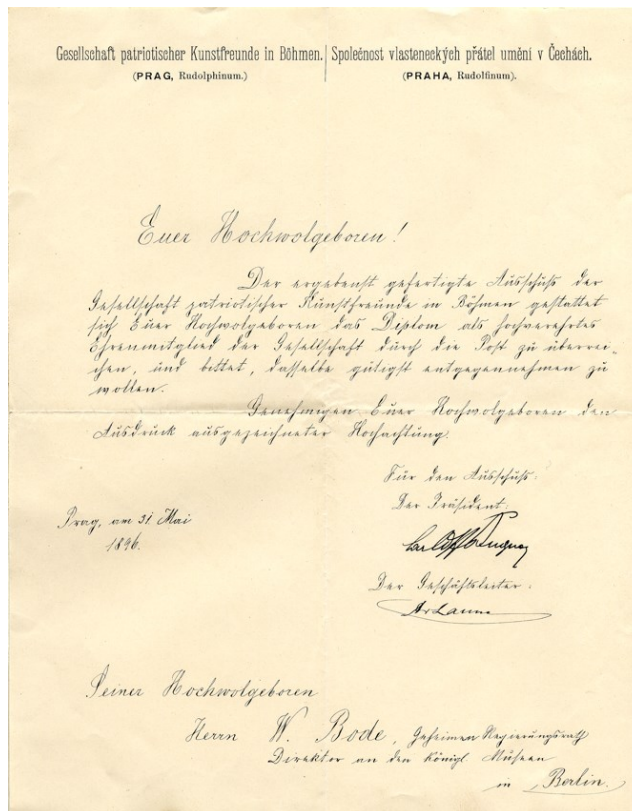 Gesellschaft patriotischer Kunstfreunde in Böhmen.
(PRAG, Rudolphinum.)
Společnost vlasteneckých přátel umění v Čechách.
(PRAHA, Rudolfinum).
Euer Hochwolgeboren!
Der ergebenst gefertigte Ausschuss der
Gesellschaft patriotischer Kunstfreunde in Böhmen gestattet
sich Euer Hochwolgeboren das Diplom als hochverehrtes
Ehrenmitglied der Gesellschaft durch die Post zu überrei-
chen, und bittet, dasselbe gütigst entgegennehmen zu
wollen.
Genehmigen Euer Hochwolgeboren den
Ausdruck ausgezeichneter Hochachtung.
Für den Ausschuss:
Der Präsident:
Prag, am 31. Mai
1896.
Der Geschäftsleiter:
Seiner Hochwolgeboren
Herrn W. Bode, Geheimen Regierungsrath
Direktor an den Königl. Museen
in Berlin.